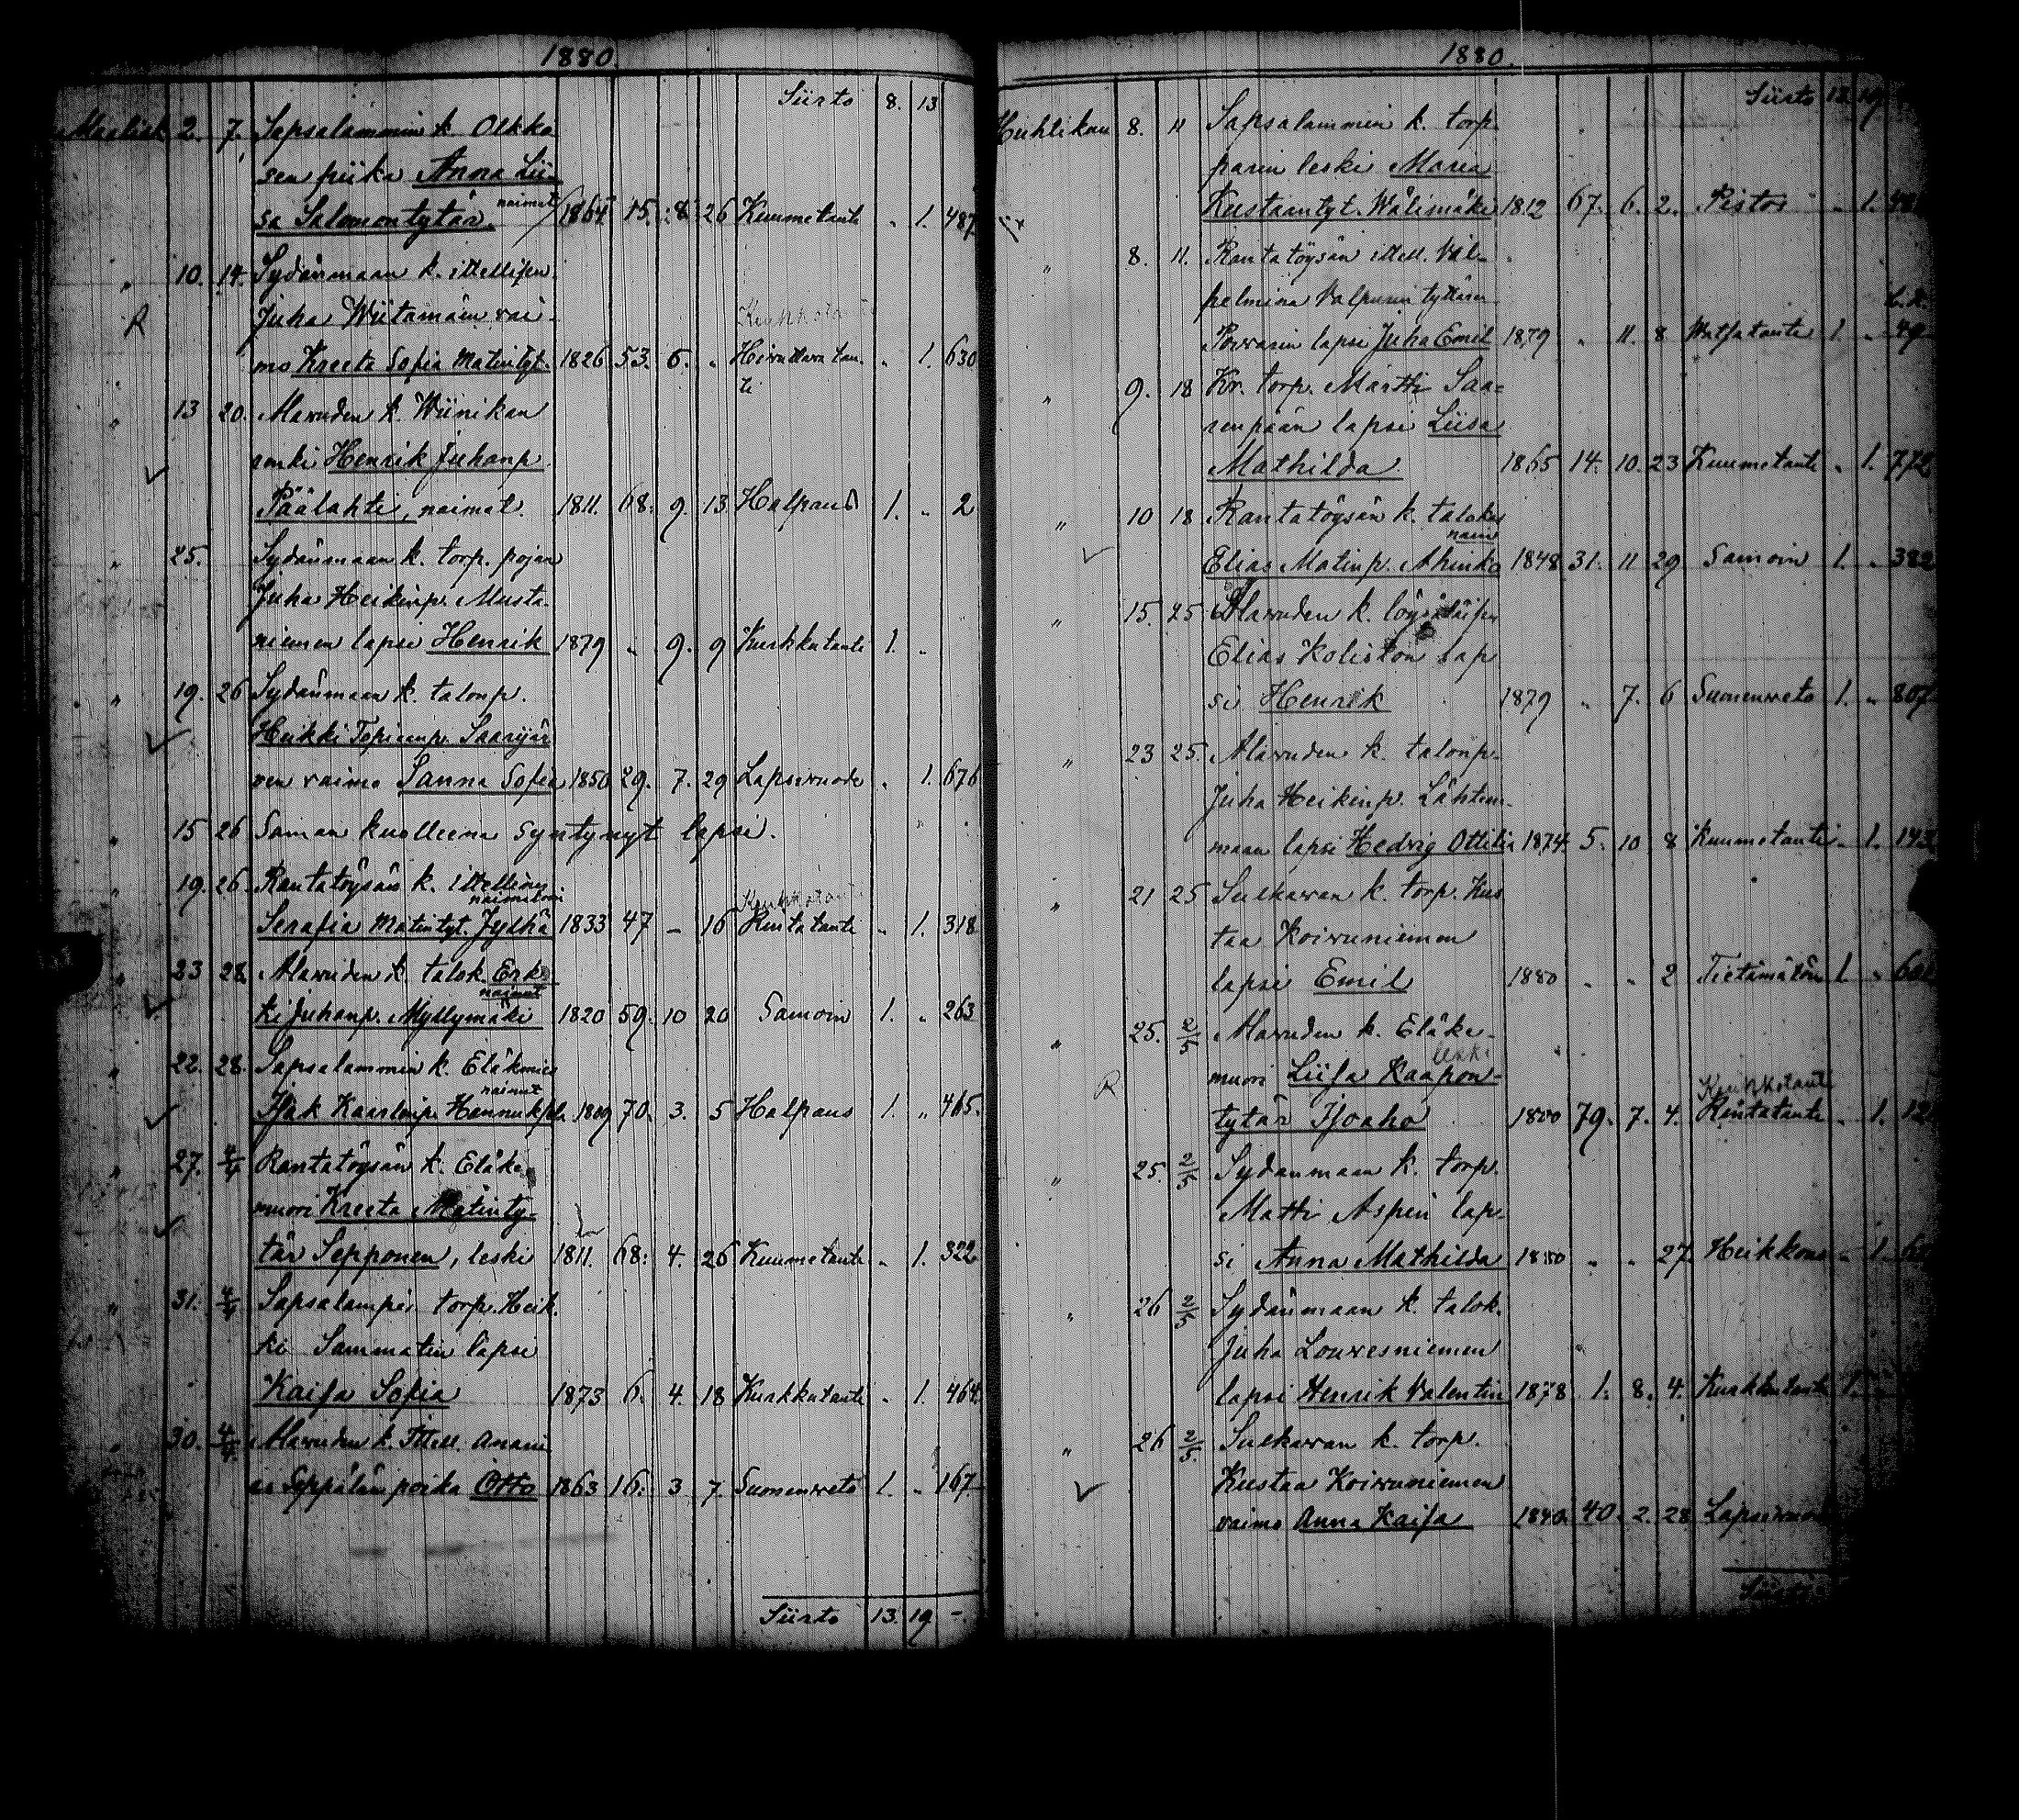 1880.
Siirto 8. 13
Maalisk 2. 7. Sapsalammin k Olkko
sen piika Anna Lii-
naimat.
sa Salomontytär. 1864 15. 8. 26 Kuumetauti " 1. 487
" 10. 14. Sydänmaan k. ittellisen
R Juha Wiitamäen vai-
mo Kreeta Sofia Matintyt. 1826 53. 6. " " 1. 630
ti
" 13 20. Alavuden k. Wiinikan
renki Henrik Juhanp.
Päälahti, naimat. 1811. 68. 9. 13 Halpaus 1. " 2
" 25. Sydänmaan k. torp. pojan
Juha Heikinp. Musta-
niemen lapsi Henrik 1879 " 9. 9 Kurkkutauti 1. "
" 19. 26 Sydänmaan k. talonp.
Heikki Saarijär
ven vaimo Sanna Sofia 1850 29. 7. 29 Lapsivuode " 1. 676
" 15 26 Saman kuolleena syntynyt lapsi.
" 19. 26. Rantatöysän k. ittellinen
naimatoin
Kuhkotauti
Serafia Matintyt. Jylhä 1833 47 - 16 Rintatauti " 1. 318
" 23 28. Alavuden k. talok. Erk-
naimat
ki Juhanp. Myllymäki 1820 59. 10 20 Samoin 1. " 263
" 22. 28. Sapsalammin k. Eläkmies
naimat
Isak Kaarlenp. Hannuksela 1809 70. 3. 5 Halpaus 1. " 465.
" 27. 4/4 Rantatöysän k. Eläke
muori Kreeta Matinty-
tär Sepponen, leski 1811. 68. 4. 26 Kuumetauti " 1. 322
" 31. 4/4 Sapsalampi torp. Heik-
ki Sammatin lapsi
Kaisa Sofia 1873 6. 4. 18 Kurkkutauti " 1. 464.
" 30. 4/4 Alavuden k. Ittell. Anani
as Seppälän poika Otto 1863 16. 3 7. Suonenveto 1. " 167.
Siirto 13. 19 -.
1880.
Siirto 13 19
Huhtikuu 8. 11 Sapsalammin k. torp-
parin leski Maria
Kustaantyt. Wälimäki 1812 67. 6. 2. Pistos " 1.
" 8. 11. Rantatöysän ittell. Vil-
helmina Valpurin tyttären
Porrasen lapsi Juha Emil 1879 " 11. 8 Watsatauti 1. " 49
" 9. 18 Kr. torp. Martti Saa-
renpään lapsi Liisa
Mathilda 1865 14. 10. 23 Kuumetauti " 1. 772
" 10 18 Rantatöysän k. talokas
naim
Elias Matinp. Ahinko 1848 31. 11 29 Samoin 1. " 382
" 15. 25 Alavuden k. löysäläisen
Elias Koliston lap
si Henrik 1879 " 7. 6 Suonenveto 1. " 807
" 23 25. Alavuden k. talonp.
Juha Heikinp. Lähten-
maan lapsi Hedvig Ottilia 1874. 5. 10 8 Kuumetauti " 1. 143
" 21 25 Sulkavan k. torp. Kus
taa Koivuniemen
lapsi Emil 1880 " " 2 Tietämätön 1 "
" 25. 2/5 Alavuden k. Eläke-
leski
R muori Liisa Kaapon-
Kuhkotauti
tytär Isoaho 1800 79. 7. 4. Rintatauti " 1. 12
" 25. 2/5 Sydänmaan k. torp.
Matti Aspin lap-
si Anna Mathilda 1880 " " 27 Heikkous " 1.
" 26 2/5 Sydänmaan k. talok.
Juha Louvesniemen
lapsi Henrik Valentin 1878 1. 8. 4. Kurkkutauti 1.
" 26 2/5. Sulkavan k. torp.
Kustaa Koivuniemen
vaimo Anna Kaisa 1840. 40. 2. 28 Lapsivuode
Siirto